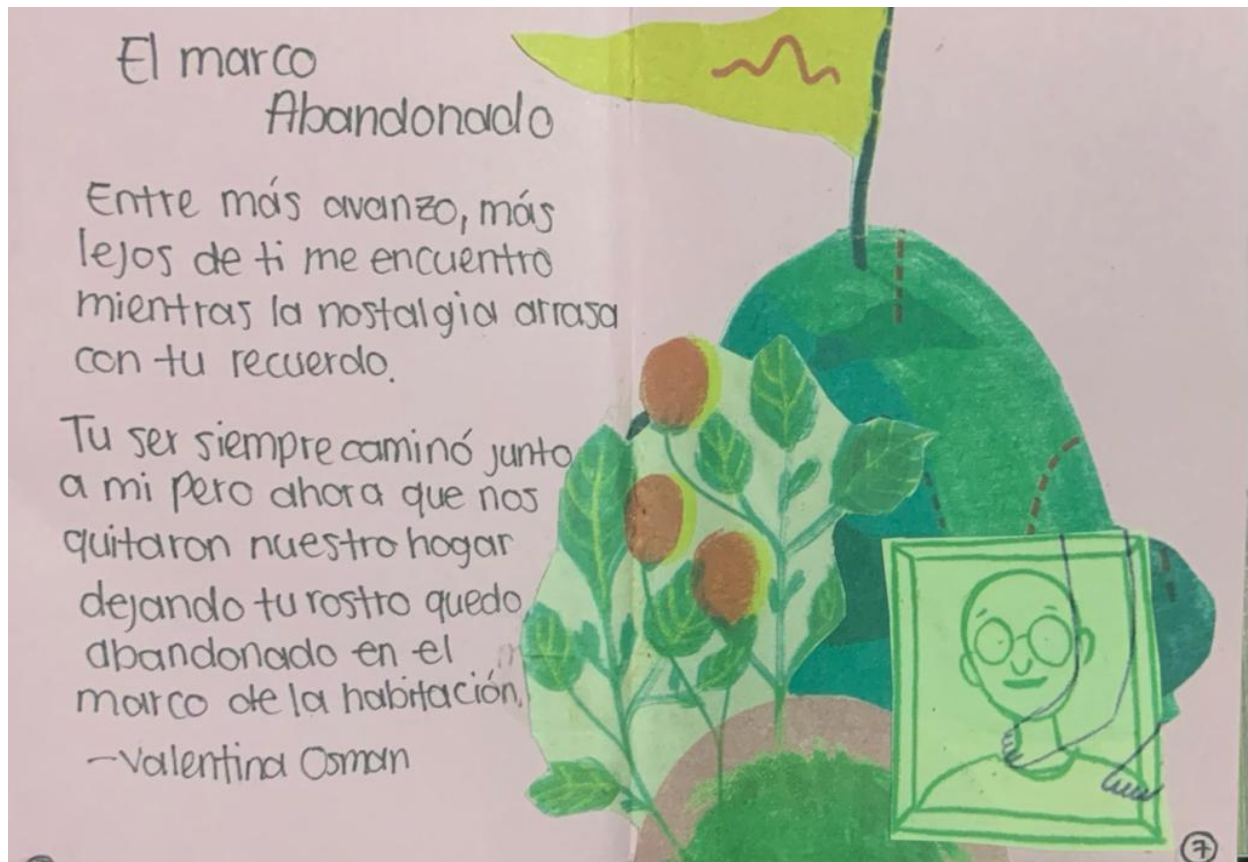 El marco
Abandonado
Entre más avanzo, más
lejos de ti me encuentro
mientras la nostalgia arrasa
con tu recuerdo.
Tu ser siempre caminó junto
a mi pero ahora que nos
quitaron nuestro hogar
dejando tu rostro quedo
abandonado en el
marco de la habitación.
-Valentina Osman
7